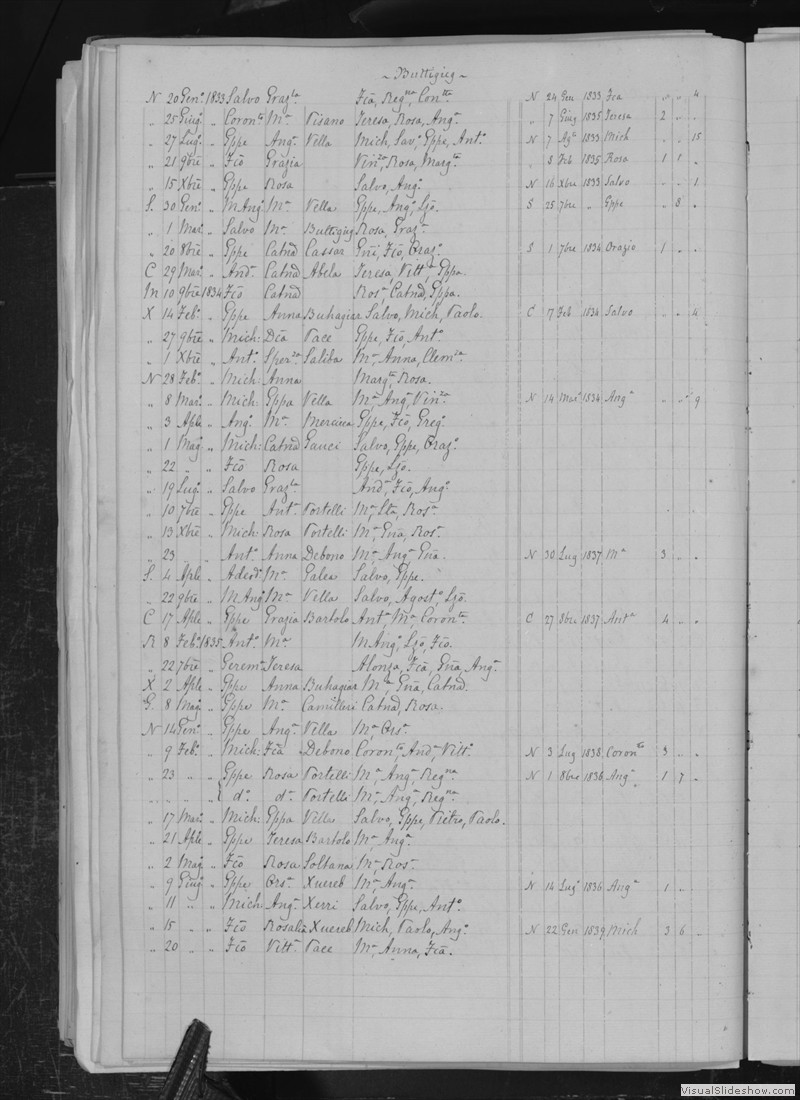 ~ Buttigieg ~
N 20 Gen.º 1833 Salvo Graz.la Fcã, Reg.na, Con.tta N 24 Gen 1833 Fca „ „ 4
„ 25 Giug.º „ Coron.to M.a Pisano Teresa, Rosa, Ang.a „ 7 Giug 1835 Teresa 2 „ .
„ 27 Lug.º „ Gppe Ang.a Vella Mich, Sav.º Gppe, Ant.º N 7 Ag.to 1833 Mich „ „ 15
„ 21 9bre „ Fcõ Grazia Vin.za, Rosa, Marg.ta „ 8 Feb 1835 Rosa 1 1 „
„ 15 Xbre „ Gppe Rosa Salvo, Ang.º N 16 Xbre 1833 Salvo „ „ 1
S. 30 Gen.º „ M Ang.º M.a Vella Gppe, Ang.º, Lzõ. S 25 7bre „ Gppe „ 8 .
„ 1 Mar.º „ Salvo M.a Buttigieg Rosa, Graz.a
„ 20 8bre „ Gppe Catnã Cassar Gni, Fcõ, Oraz.º S 1 7bre 1834 Orazio 1 . .
C 29 Mar.º „ And.a Catnã Abela Teresa, Vitt.a, Gppa.
M 10 9bre 1834 Fcõ Catnã Ros.a, Catnã, Gppa.
X 14 Feb.º „ Gppe Anna Buhagiar Salvo, Mich, Paolo. C 17 Feb 1834 Salvo „ „ 4
„ 27 9bre „ Mich: Dca Pace Gppe, Fcõ, Ant.º
„ 1 Xbre „ Ant.º Sper.za Saliba M.a Anna, Clem.za
N 28 Feb.º „ Mich: Anna Marg.ta, Rosa.
„ 8 Mar.º „ Mich: Gppa Vella M.a Ang.a, Vin.za N 14 Mar.º 1834 Ang.a „ „ 9
„ 3 Aple „ Ang.º M.a Mercieca Gppe, Fcõ, Greg.º
„ 1 Mag.º „ Mich: Catnã Gauci Salvo, Gppe, Oraz.º
„ 22 „ „ Fcõ Rosa Gppe, Lzõ.
„ 19 Lug.º „ Salvo Graz.la And.a, Fcõ, Ang.º
„ 10 7bre „ Gppe Ant.a Portelli M.a Lta, Ros.a
„ 13 Xbre „ Mich: Rosa Portelli M.a Gnã, Ros.a
„ 23 „ Ant.º Anna Debono M.a Ang.a Gnã. N 30 Lug 1837 M.a 3 „ .
S. 4 Aple „ Adeod.º M.a Galea Salvo, Gppe.
„ 22 9bre „ M Ang.º M.a Vella Salvo, Agost.º, Lzõ.
C 17 Aple „ Gppe Grazia Bartolo Ant.a, M.a, Coron.ta C 27 8bre 1837 Ant.a 4 „ .
R 8 Feb.º 1835 Ant.º M.a M Ang.º, Lzõ, Fcõ.
„ 22 7bre „ Gerem.a Teresa Alonza, Fcã, Gnã, Ang.a
X 2 Aple „ Gppe Anna Buhagiar M.a, Gnã, Catnã.
G. 8 Mag.º „ Gppe M.a Camilleri Catnã, Rosa.
N 14 Gen.º „ Gppe Ang.a Vella M.a, Ors.a
„ 9 Feb.º „ Mich: Fcã Debono Coron.to, And.a, Vitt.º N 3 Lug 1838 Coron.to 3 „ .
„ 23 „ „ Gppe Rosa Portelli M.a, Ang.a, Reg.na N 1 8bre 1836 Ang.a 1 7 „
„ „ „ { d.º d.a Portelli M.a, Ang.a, Reg.na
„ 17 Mar.º „ Mich: Gppa Vella Salvo, Gppe, Pietro, Paolo.
„ 21 Aple „ Gppe Teresa Bartolo M.a, Ang.a
„ 2 Mag.º „ Fcõ Rosa Soltana M.a, Ros.a
„ 9 Giug.º „ Gppe Ors.a Xuereb M.a, Ang.a N 14 Lug.º 1836 Ang.a 1 „
„ 11 „ „ Mich: Ang.a Xerri Salvo, Gppe, Ant.º
„ 15 „ Fcõ Rosalia Xuereb Mich, Paolo, Ang.º N 22 Gen 1839 Mich 3 6 „
„ 20 „ Fcõ Vitt.a Pace M.a, Anna, Fcã.
VisualSlideshow.com